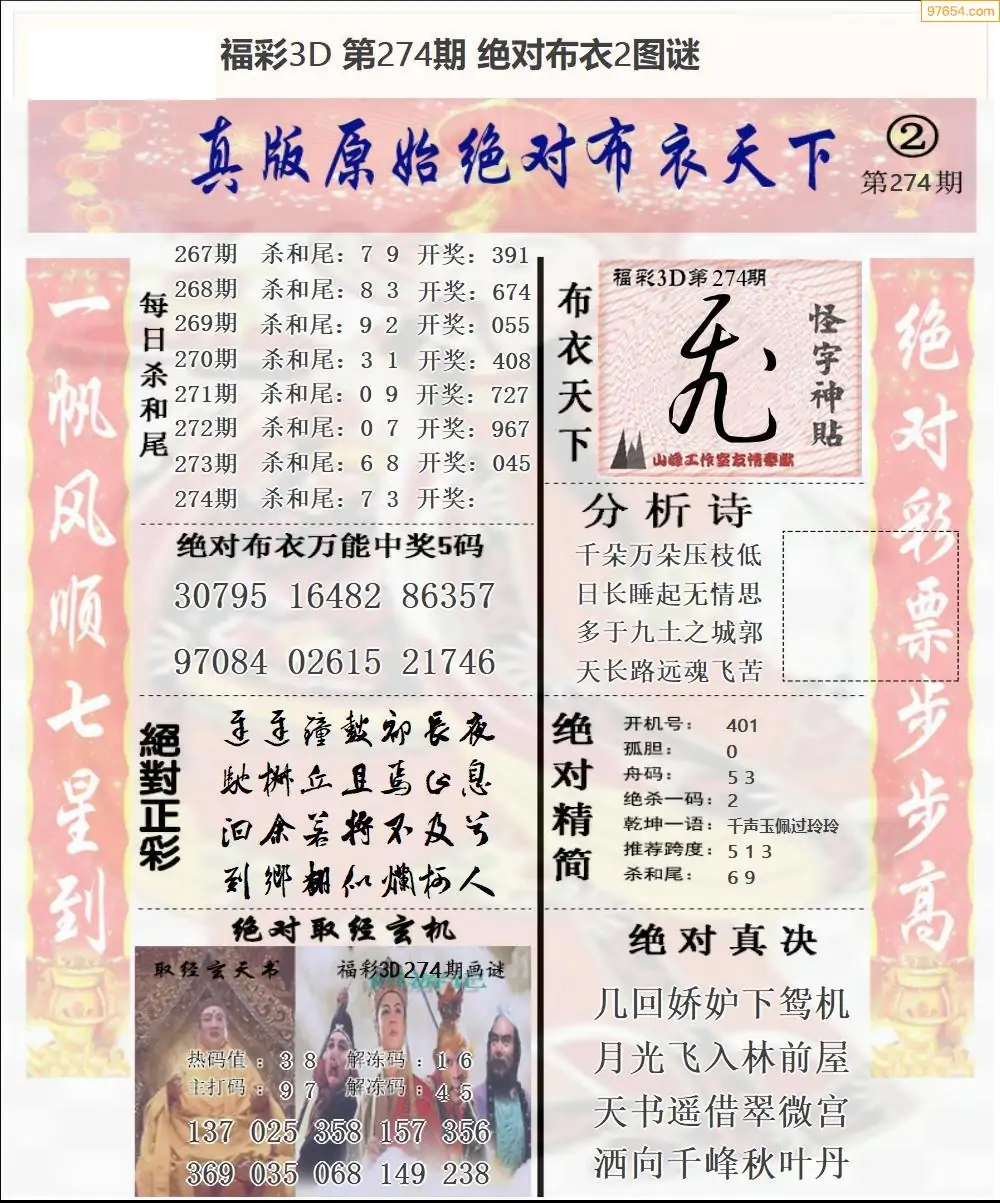 97654.com
福彩3D 第274期 绝对布衣2图谜
真版原始绝对布衣天下
②
第274期
一帆风顺七星到
每日杀和尾
267期 杀和尾：7 9 开奖：391
268期 杀和尾：8 3 开奖：674
269期 杀和尾：9 2 开奖：055
270期 杀和尾：3 1 开奖：408
271期 杀和尾：0 9 开奖：727
272期 杀和尾：0 7 开奖：967
273期 杀和尾：6 8 开奖：045
274期 杀和尾：7 3 开奖：
绝对布衣万能中奖5码
30795 16482 86357
97084 02615 21746
絕對正彩
到鄉翻似爛柯人
绝对取经玄机
取经玄天书
福彩3D274期画谜
热码值：3 8 解冻码：1 6
主打码：9 7 解冻码：4 5
137 025 358 157 356
369 035 068 149 238
布衣天下
福彩3D第274期
怪字神貼
山峰工作室友情奉献
分析诗
千朵万朵压枝低
日长睡起无情思
多于九土之城郭
天长路远魂飞苦
绝对精简
开机号：401
孤胆：0
舟码：5 3
绝杀一码：2
乾坤一语：千声玉佩过玲玲
推荐跨度：5 1 3
杀和尾：6 9
绝对真决
几回娇妒下鸳机
月光飞入林前屋
天书遥借翠微宫
洒向千峰秋叶丹
绝对彩票步步高